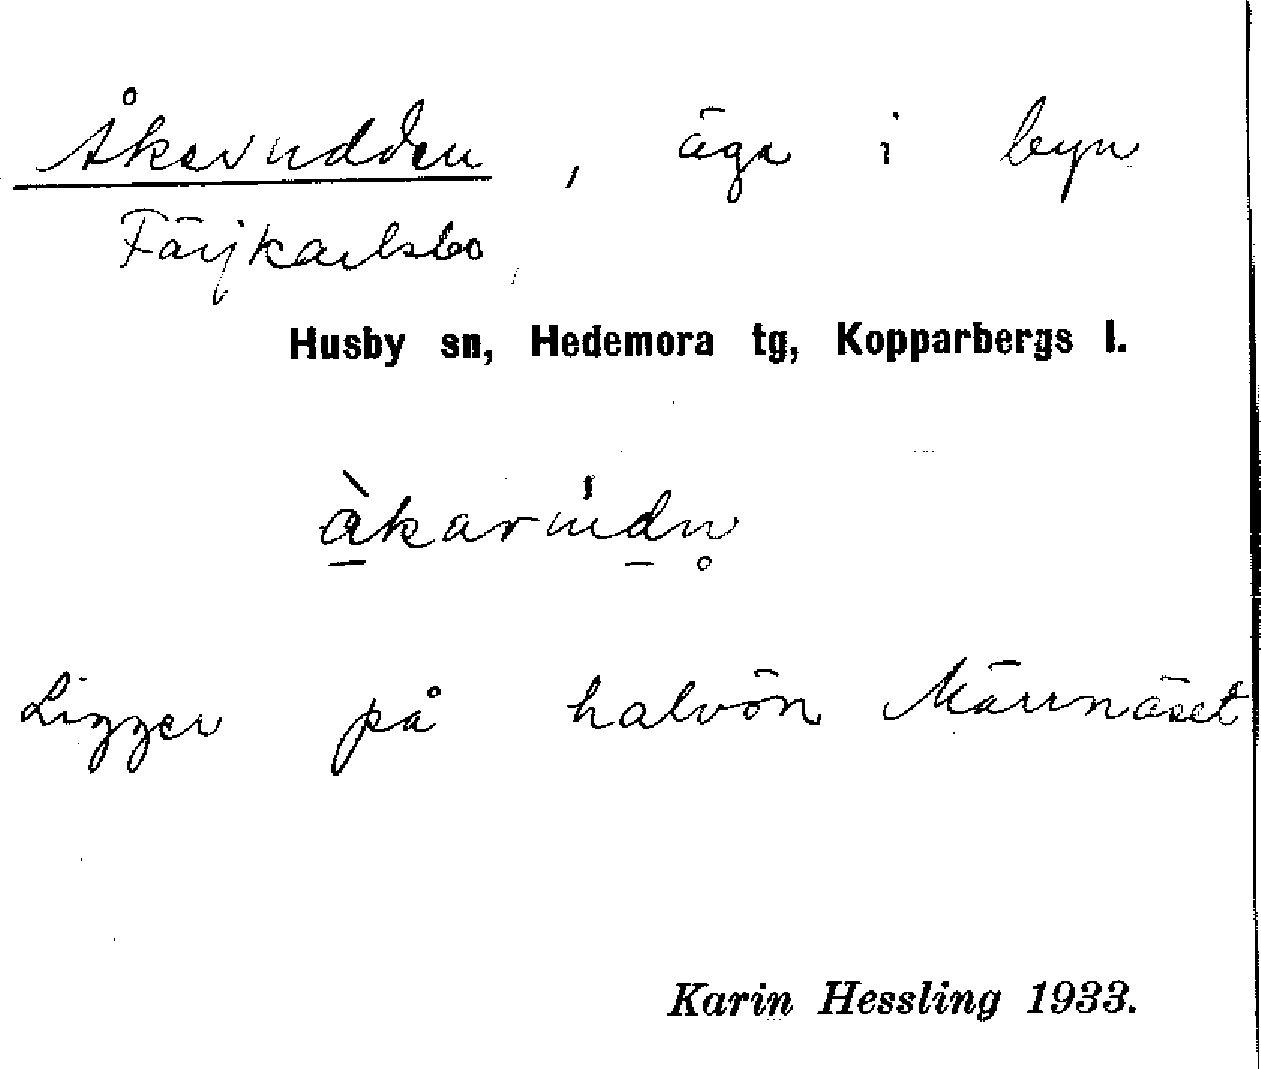 Åkerudden, äga i byn
Färjkarlsbo,
Husby sn, Hedemora tg, Kopparbergs l.
Ligger på halvön Märrnäset
Karin Hessling 1933.